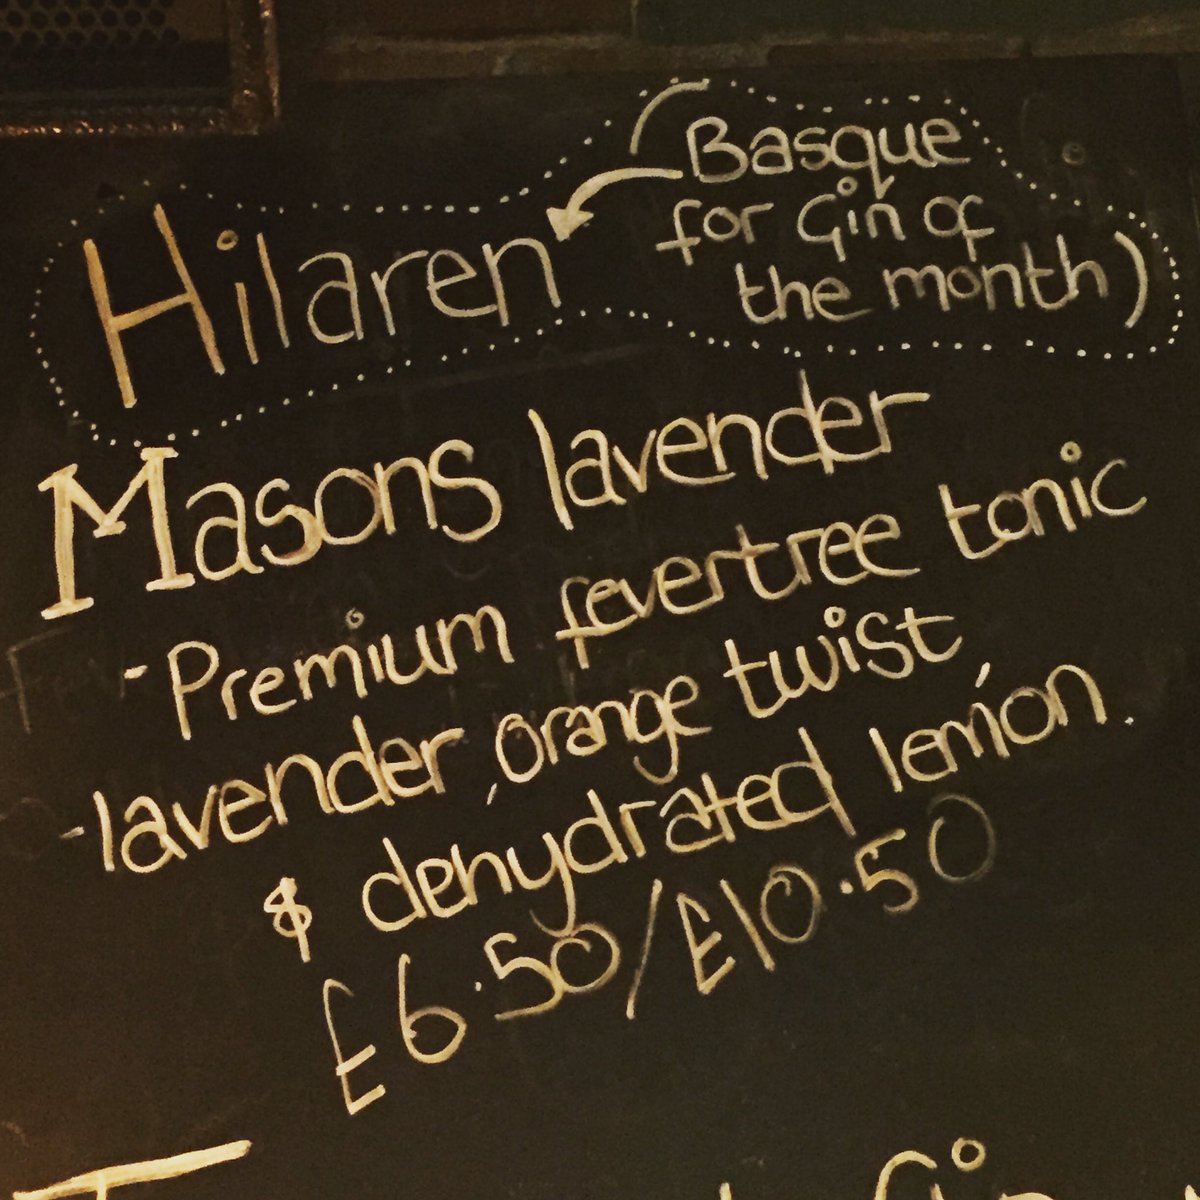 Hilaren
(Basque
for Gin of
the month)
Masons lavender
-Premium fevertree tonic
-lavender, orange twist,
& dehydrated lemon.
£6.50/£10.50